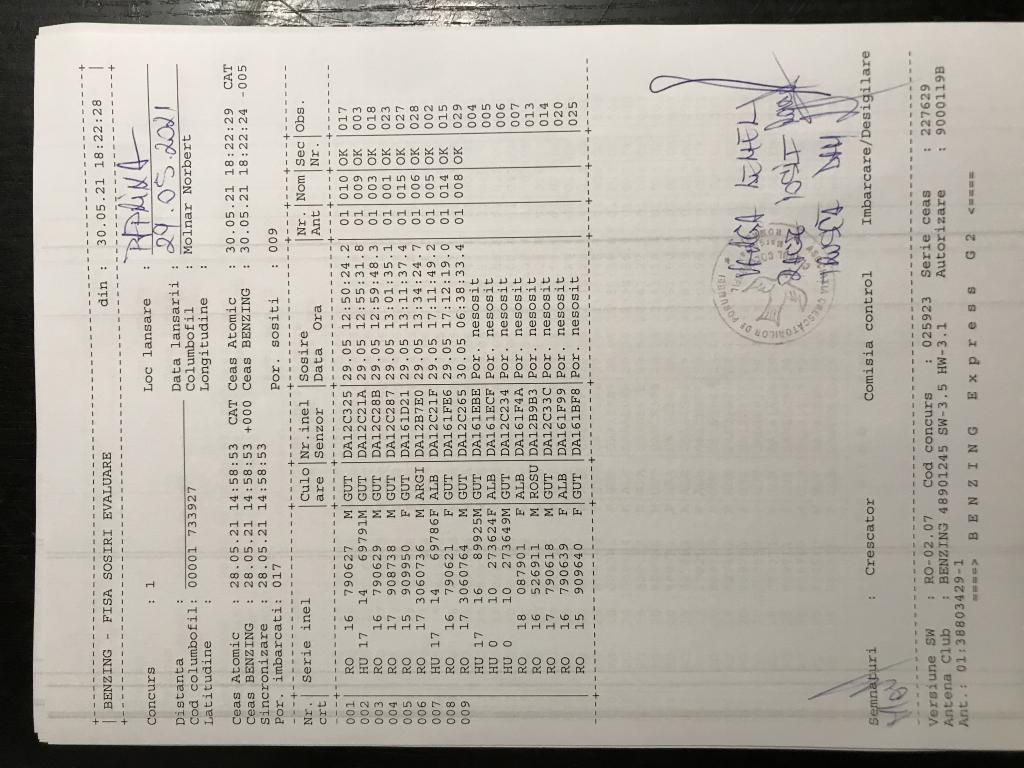 | BENZING - FISA SOSIRI EVALUARE din : 30.05.21 18:22:28 |
Concurs : 1 Loc lansare :
Distanta : Data lansarii : 29.05.2021
Cod columbofil: 00001 733927 Columbofil : Molnar Norbert
Latitudine : Longitudine :
Ceas Atomic : 28.05.21 14:58:53 CAT Ceas Atomic : 30.05.21 18:22:29 CAT
Ceas BENZING : 28.05.21 14:58:53 +000 Ceas BENZING : 30.05.21 18:22:24 -005
Sincronizare : 28.05.21 14:58:53
Por. imbarcati: 017 Por. sositi : 009
Nr. | Serie inel |Culo|Nr.inel |Sosire |Nr. |Nom|Sec|Obs.
crt | |are |Senzor |Data Ora |Ant | |Nr.|
001 | RO 16 790627 M|GUT |DA12C325|29.05 12:50:24.2|01 |010|OK |017
002 | HU 17 14 69791M|GUT |DA12C21A|29.05 12:55:31.8|01 |009|OK |003
003 | RO 16 790629 M|GUT |DA12C28B|29.05 12:59:48.3|01 |003|OK |018
004 | RO 17 908738 M|GUT |DA12C287|29.05 13:01:35.1|01 |001|OK |023
005 | RO 15 909950 F|GUT |DA161D21|29.05 13:11:37.4|01 |015|OK |027
006 | RO 17 3060736 M|ARGI|DA12B7E0|29.05 13:34:24.7|01 |006|OK |028
007 | HU 17 14 69786F|ALB |DA12C21F|29.05 17:11:49.2|01 |005|OK |002
008 | RO 16 790621 F|GUT |DA161FE6|29.05 17:12:19.0|01 |014|OK |015
009 | RO 17 3060764 M|GUT |DA12C265|30.05 06:38:33.4|01 |008|OK |029
| HU 17 16 89925M|GUT |DA161EBE|Por. nesosit |004
| HU 0 10 273624F|ALB |DA161ECF|Por. nesosit |005
| HU 0 10 273649M|GUT |DA12C234|Por. nesosit |006
| RO 18 087901 F|ALB |DA161F4A|Por. nesosit |007
| RO 16 526911 M|ROSU|DA12B9B3|Por. nesosit |013
| RO 17 790618 M|GUT |DA12C33C|Por. nesosit |014
| RO 16 790639 F|ALB |DA161F99|Por. nesosit |020
| RO 15 909640 F|GUT |DA161BF8|Por. nesosit |025
Semnaturi : Crescator Comisia control Imbarcare/Desigilare
Versiune SW : RO-02.07 Cod concurs : 025923 Serie ceas : 227629
Antena Club : BENZING 48901245 SW-3.5 HW-3.1 Autorizare : 9000119B
Ant.: 01:38803429-1
====> B E N Z I N G E x p r e s s G 2 <====